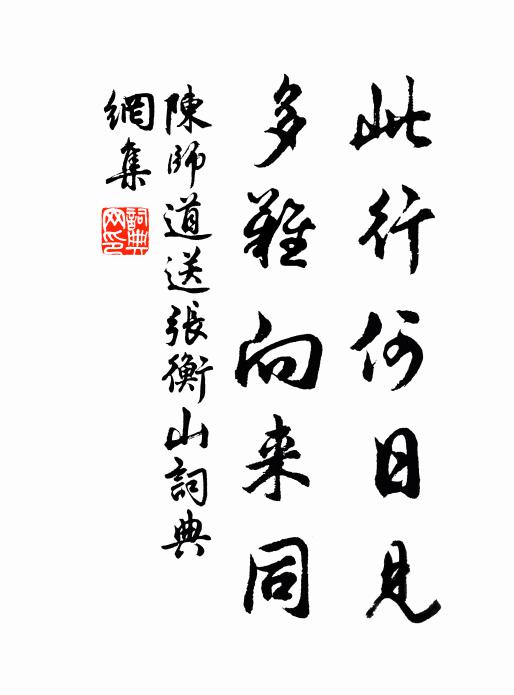 此行何日見
多難向来同
陳師道送張衡山詞典
網集
詞典
网印